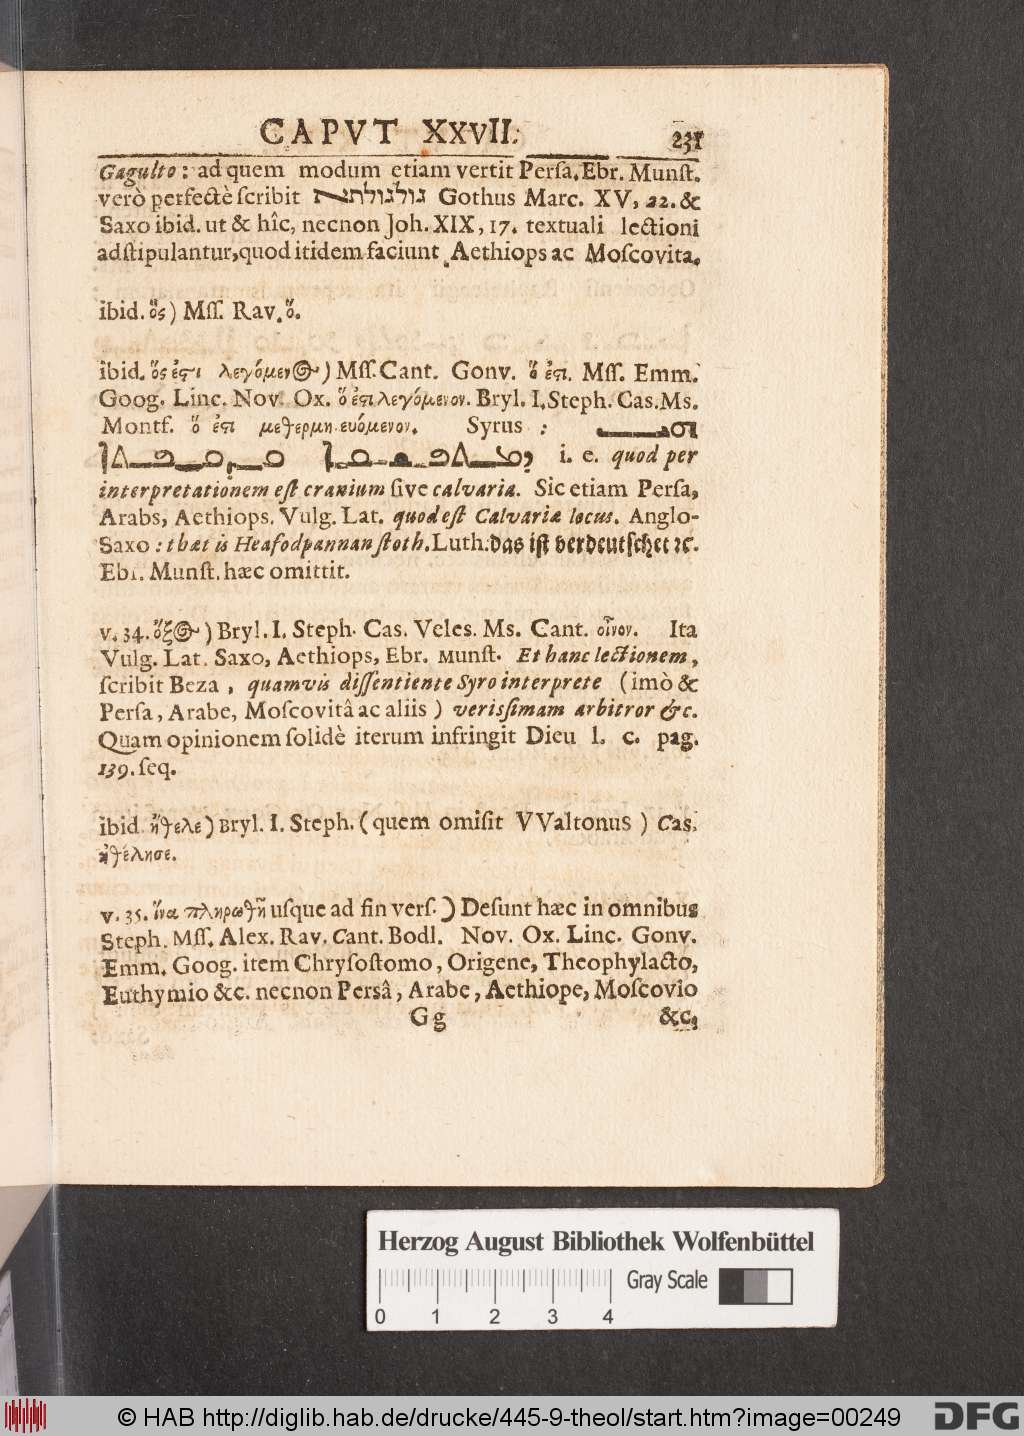 CAPVT XXVII. 231
Gagulto: ad quem modum etiam vertit Persa. Ebr. Munſt.
verò perfectè ſcribit גולגולתא Gothus Marc. XV, 22. &
Saxo ibid. ut & hîc, necnon Joh. XIX, 17. textuali lectioni
adſtipulantur, quod itidem faciunt Aethiops ac Moſcovita.
ibid. ὅς) Mſſ. Rav. ὅ.
ibid. ὅς ἐςι λεγόμενος) Mſſ. Cant. Gonv. ὅ ἐςι. Mſſ. Emm.
Goog. Linc. Nov. Ox. ὅ ἐςι λεγόμενον. Bryl. I. Steph. Cas. Ms.
Montf. ὅ ἐςι μεθερμηνευόμενον. Syrus :
i. e. quod per
interpretationem eſt cranium ſive calvaria. Sic etiam Perſa,
Arabs, Aethiops. Vulg. Lat. quod eſt Calvariæ locus. Anglo-
Saxo: thæt is Heafodpannan ſtoth. Luth. das iſt verdeutſchet ꝛc.
Ebr. Munſt. hæc omittit.
v. 34. ὄξος) Bryl. I. Steph. Cas. Veles. Ms. Cant. οἶνον. Ita
Vulg. Lat. Saxo, Aethiops, Ebr. Munſt. Et hanc lectionem,
ſcribit Beza, quamvis diſſentiente Syro interprete (imò &
Perſa, Arabe, Moſcovitâ ac aliis) veriſſimam arbitror &c.
Quam opinionem ſolidè iterum infringit Dieu l. c. pag.
139. ſeq.
ibid. ἤθελε) Bryl. I. Steph. (quem omiſit VValtonus) Cas.
ἠθέλησε.
v. 35. ἵνα πληρωθῇ usque ad fin verſ.) Deſunt hæc in omnibus
Steph. Mſſ. Alex. Rav. Cant. Bodl. Nov. Ox. Linc. Gonv.
Emm. Goog. item Chryſoſtomo, Origene, Theophylacto,
Euthymio &c. necnon Perſâ, Arabe, Aethiope, Moſcovio
Gg &c,
Herzog August Bibliothek Wolfenbüttel
Gray Scale
0 1 2 3 4
© HAB http://diglib.hab.de/drucke/445-9-theol/start.htm?image=00249 DFG